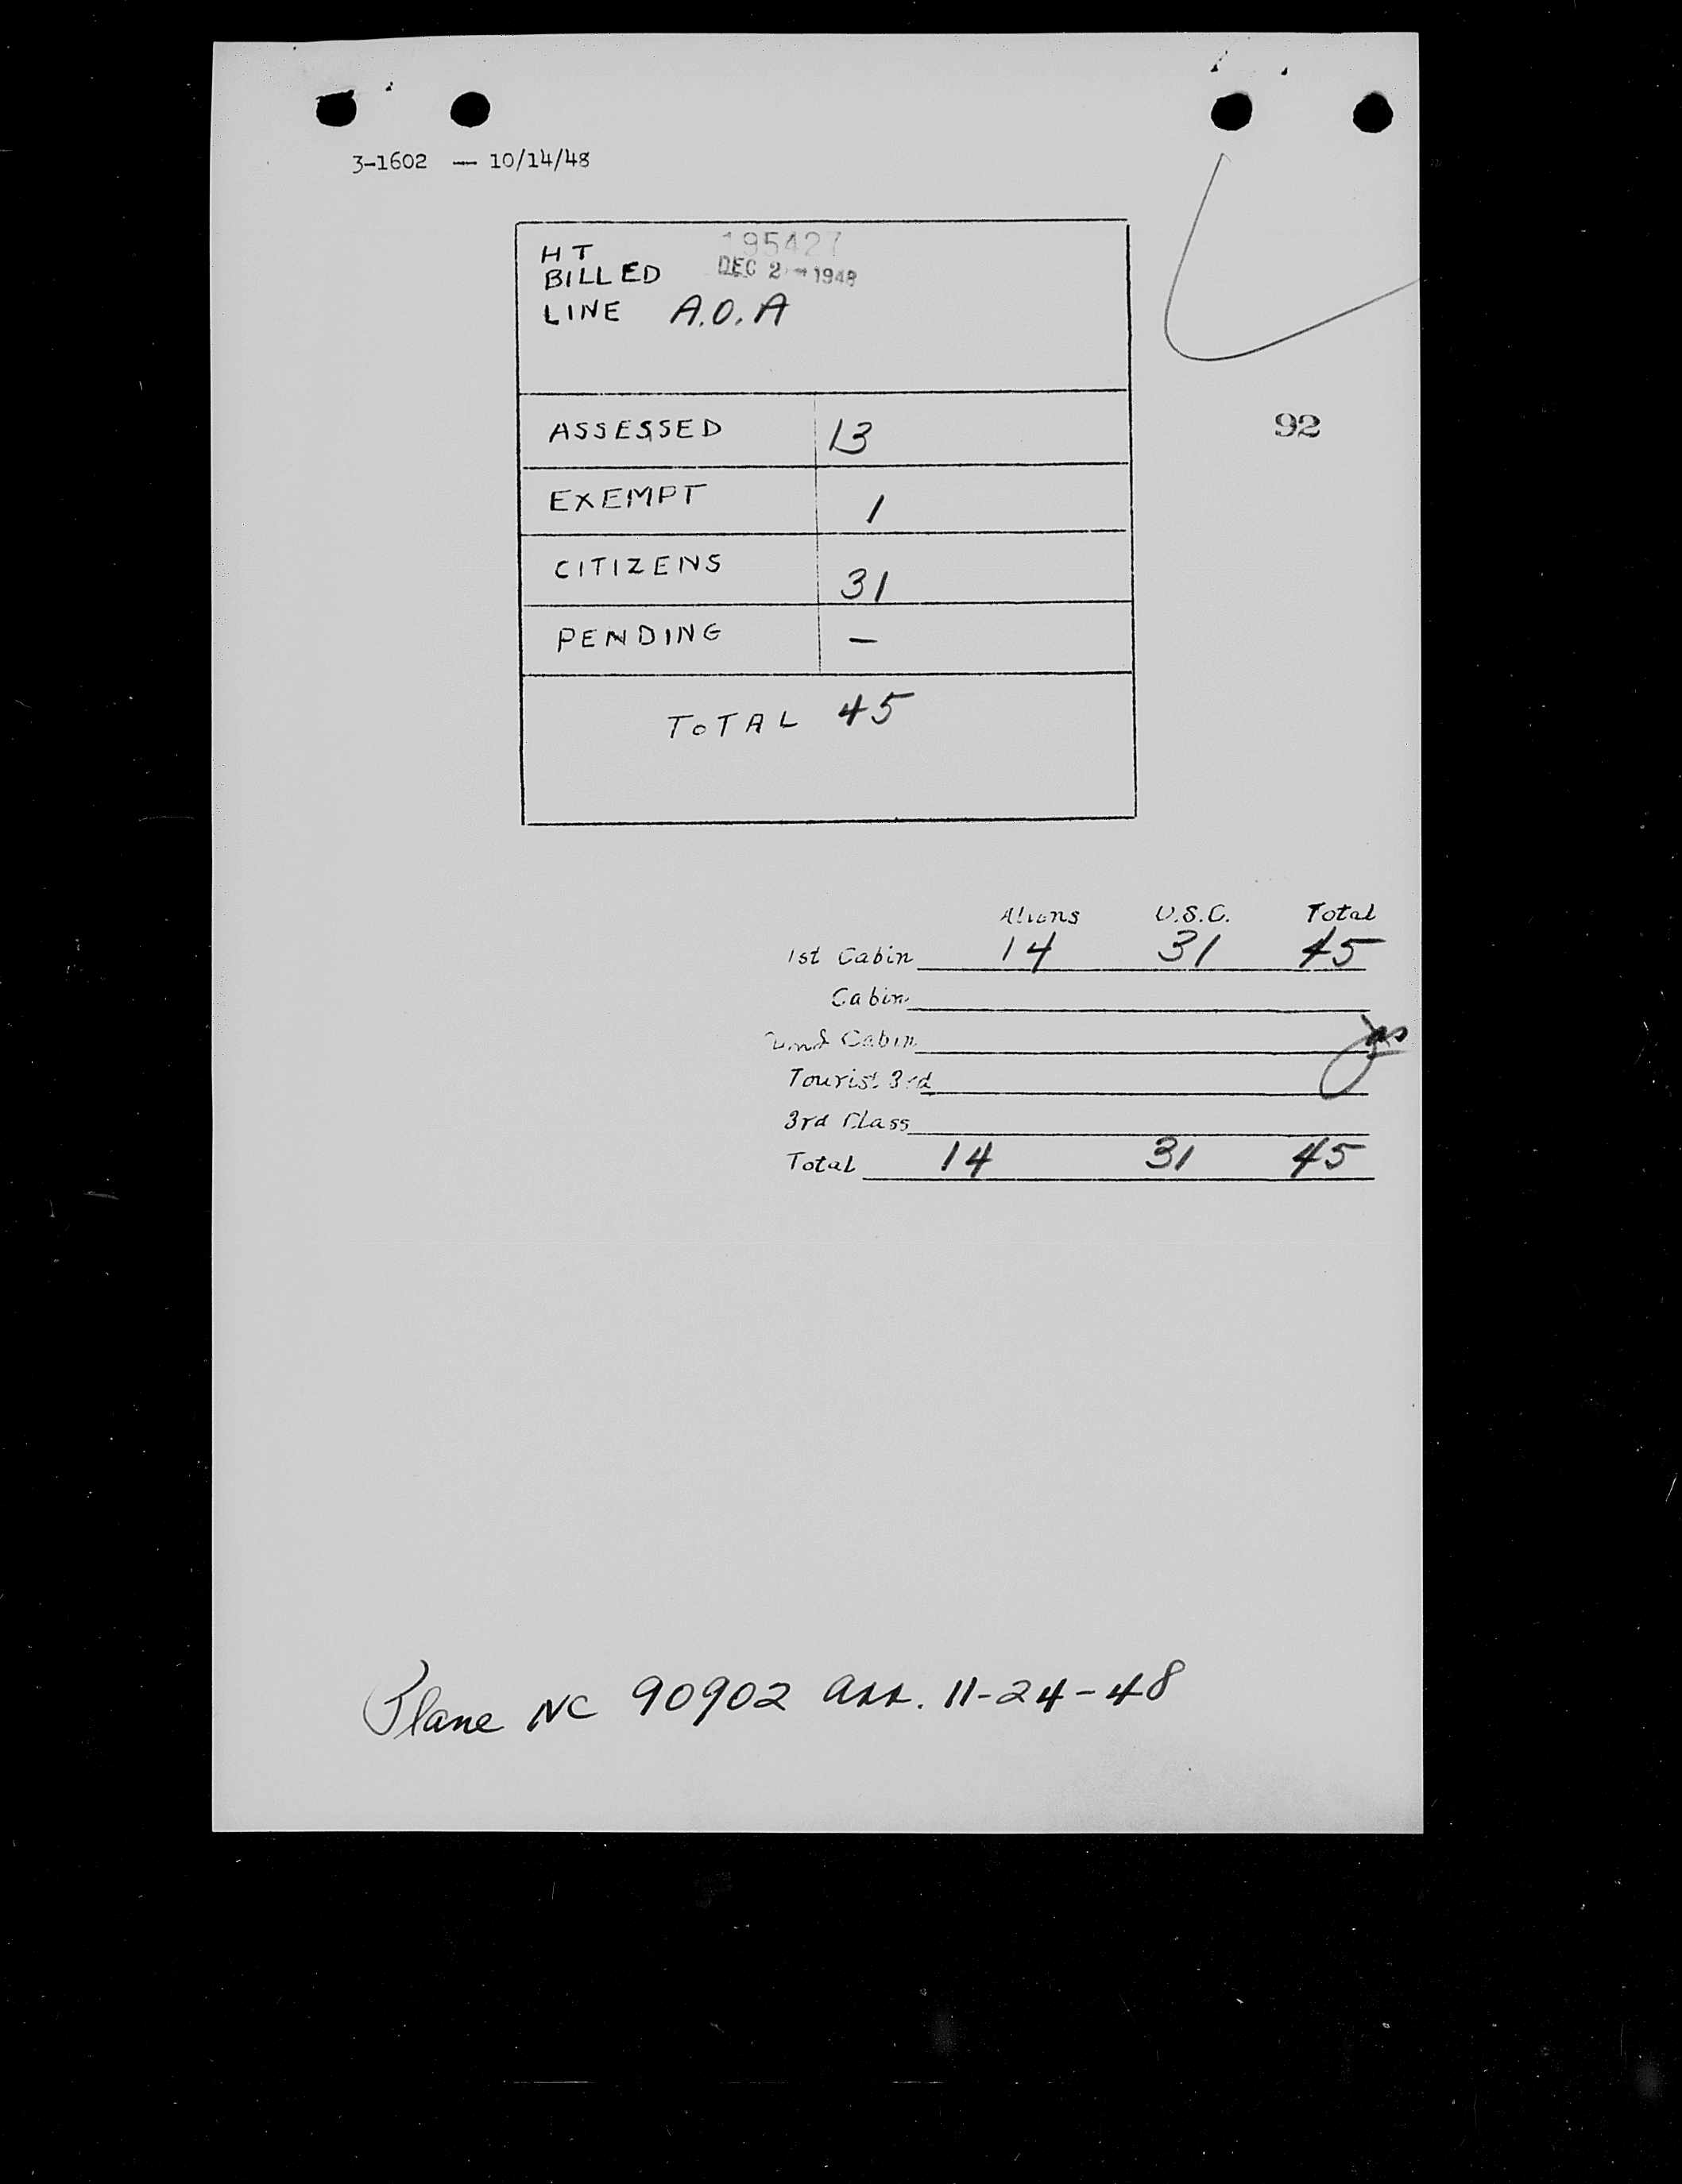 3-1602 — 10/14/48
HT 195427
BILLED DEC 2 - 1948
LINE A.O.A
92
ASSESSED 13
EXEMPT 1
CITIZENS 31
PENDING —
TOTAL 45
Aliens U.S.C. Total
1st Cabin 14 31 45
Cabin
Cabin
Tourist 3rd
3rd Class
Total 14 31 45
Plane NC 90902 arr. 11-24-48